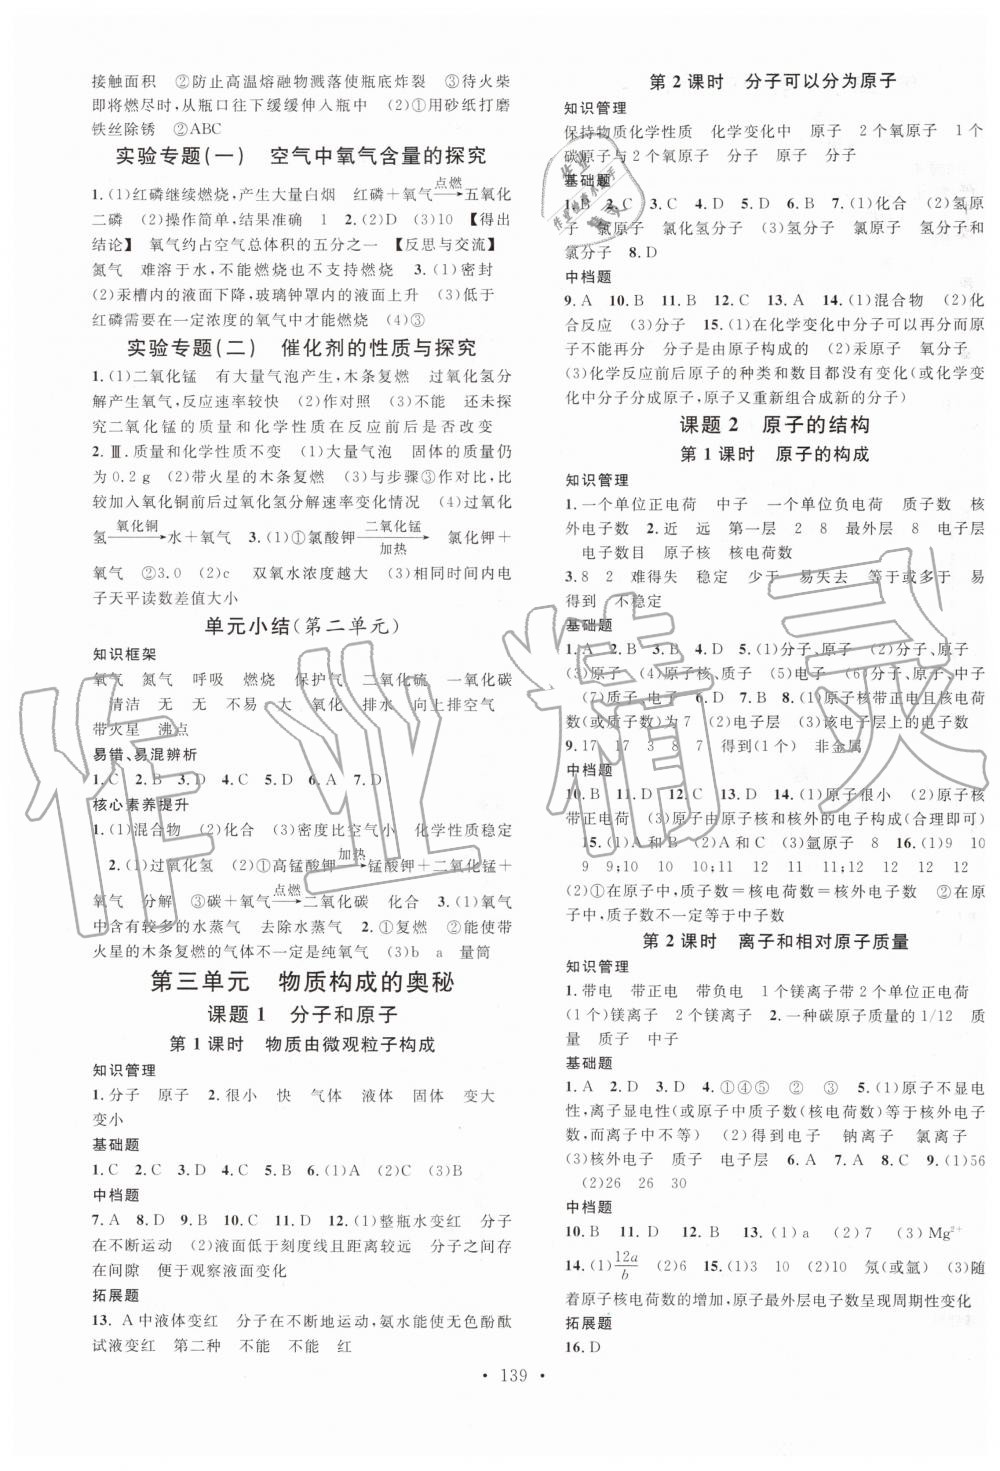 接触面积　②防止高温熔融物溅落使瓶底炸裂　③待火柴
即将燃尽时，从瓶口往下缓缓伸入瓶中　(2)①用砂纸打磨
铁丝除锈　②ABC
实验专题(一)　空气中氧气含量的探究
1.(1)红磷继续燃烧，产生大量白烟　红磷＋氧气 点燃→ 五氧化
二磷　(2)操作简单，结果准确　1　2.(2)D　(3)10　【得出
结论】　氧气约占空气总体积的五分之一　【反思与交流】
氮气　难溶于水，不能燃烧也不支持燃烧　3.(1)密封
(2)汞槽内的液面下降，玻璃钟罩内的液面上升　(3)低于
红磷需要在一定浓度的氧气中才能燃烧　(4)③
实验专题(二)　催化剂的性质与探究
1.(1)二氧化锰　有大量气泡产生，木条复燃　过氧化氢分
解产生氧气，反应速率较快　(2)作对照　(3)不能　还未探
究二氧化锰的质量和化学性质在反应前后是否改变
2.Ⅲ.质量和化学性质不变　(1)大量气泡　固体的质量仍
为0.2g　(2)带火星的木条复燃　(3)与步骤③作对比，比
较加入氧化铜前后过氧化氢分解速率变化情况　(4)过氧化
氢 氧化铜→ 水＋氧气　3.(1)①氯酸钾 二氧化锰/加热→ 氯化钾＋
氧气　②3.0　(2)c　双氧水浓度越大　(3)相同时间内电
子天平读数差值大小
单元小结(第二单元)
知识框架
氧气　氮气　呼吸　燃烧　保护气　二氧化硫　一氧化碳
清洁　无　无　不易　大　氧化　排水　向上排空气
带火星　沸点
易错、易混辨析
1.C　2.B　3.D　4.C　5.D　6.A　7.D
核心素养提升
1.(1)混合物　(2)化合　(3)密度比空气小　化学性质稳定
2.(1)过氧化氢　(2)①高锰酸钾 加热→ 锰酸钾＋二氧化锰＋
氧气　分解　③碳＋氧气 点燃→ 二氧化碳　化合　3.(1)氧气
中含有较多的水蒸气　去除水蒸气　2.①复燃　②能使带
火星的木条复燃的气体不一定是纯氧气　(3)b　a　量筒
第三单元　物质构成的奥秘
课题1　分子和原子
第1课时　物质由微观粒子构成
知识管理
1.分子　原子　2.很小　快　气体　液体　固体　变大
变小
基础题
1.C　2.C　3.D　4.C　5.B　6.(1)A　(2)C　(3)B
中档题
7.A　8.D　9.B　10.C　11.D　12.(1)整瓶水变红　分子
在不断运动　(2)液面低于刻度线且距离较远　分子之间存
在间隙　便于观察液面变化
拓展题
13.A中液体变红　分子在不断地运动，氨水能使无色酚酞
试液变红　第二种　不能　不能　红
第2课时　分子可以分为原子
知识管理
保持物质化学性质　化学变化中　原子　2个氧原子　1个
碳原子与2个氧原子　分子　原子　分子
基础题
1.D　2.C　3.C　4.D　5.D　6.B　7.(1)化合　(2)氢原
子　氯原子　氯化氢分子　(3)氢分子　氯原子　氢分子和
氯分子　8.D
中档题
9.A　10.B　11.B　12.C　13.A　14.(1)混合物　(2)化
合反应　(3)分子　15.(1)在化学变化中分子可以再分而原
子不能再分　分子是由原子构成的　(2)汞原子　氧分子
(3)化学反应前后原子的种类和数目都没有变化(或化学变
化中分子分成原子，原子又重新组合成新的分子)
课题2　原子的结构
第1课时　原子的构成
知识管理
1.一个单位正电荷　中子　一个单位负电荷　质子数　核
外电子数　2.近　远　第一层　2　8　最外层　8　电子层
电子数目　原子核　核电荷数
3.8　2　难得失　稳定　少于　易失去　等于或多于　易
得到　不稳定
基础题
1.A　2.B　3.B　4.C　5.(1)分子、原子　(2)分子、原子
(3)原子　(4)原子核、质子　(5)电子　(6)分子、原子、中子
(7)质子、电子　6.D　7.B　8.(1)原子核带正电且核电荷
数(或质子数)为7　(2)电子层　(3)该电子层上的电子数
9.17　17　3　8　7　得到(1个)　非金属
中档题
10.B　11.D　12.C　13.D　14.(1)原子很小　(2)原子核
带正电　(3)原子由原子核和核外的电子构成(合理即可)
15.(1)A和B　(2)A和C　(3)氩原子　16.(1)9　10
9　9；10　10；11　12　11　11；12　12　12　12
(2)①在原子中，质子数＝核电荷数＝核外电子数　②在原
子中，质子数不一定等于中子数
第2课时　离子和相对原子质量
知识管理
1.带电　带正电　带负电　1个镁离子带2个单位正电荷
(1个)镁离子　2个镁离子　2.一种碳原子质量的1/12　质
量　质子　中子
基础题
1.A　2.D　3.D　4.①④⑤　②　③　5.(1)原子不显电
性，离子显电性(或原子中质子数(核电荷数)等于核外电子
数，而离子中不等)　(2)得到电子　钠离子　氯离子
(3)核外电子　质子　电子层　6.A　7.A　8.C　9.(1)56
(2)26　26　30
中档题
10.B　11.D　12.B　13.(1)a　(2)7　(3)Mg²⁺
14.(1)12a/b　(2)6　15.(1)3　10　(2)氖(或氩)　(3)随
着原子核电荷数的增加，原子最外层电子数呈现周期性变化
拓展题
16.D
· 139 ·
作业精灵